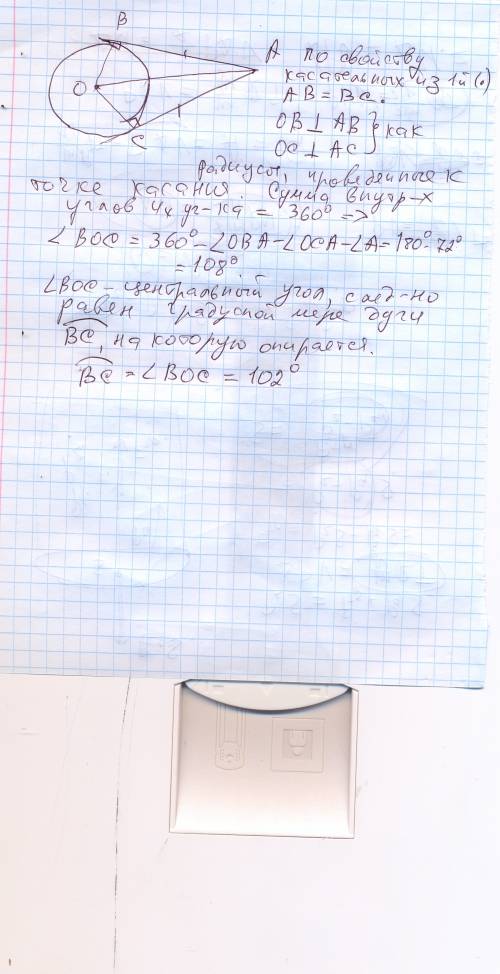 B
A
O
C
по свойству
касательных из 1й (•)
AB = BC.
OB ⊥ AB
OC ⊥ AC } как
радиусы, проведенные к
точке касания. Сумма внутр-х
углов 4х уг-ка = 360° =>
∠BOC = 360° - ∠OBA - ∠OCA - ∠A = 180° - 72°
= 108°.
∠BOC - центральный угол, след-но
равен градусной мере дуги
BC, на которую опирается.
BC = ∠BOC = 102°